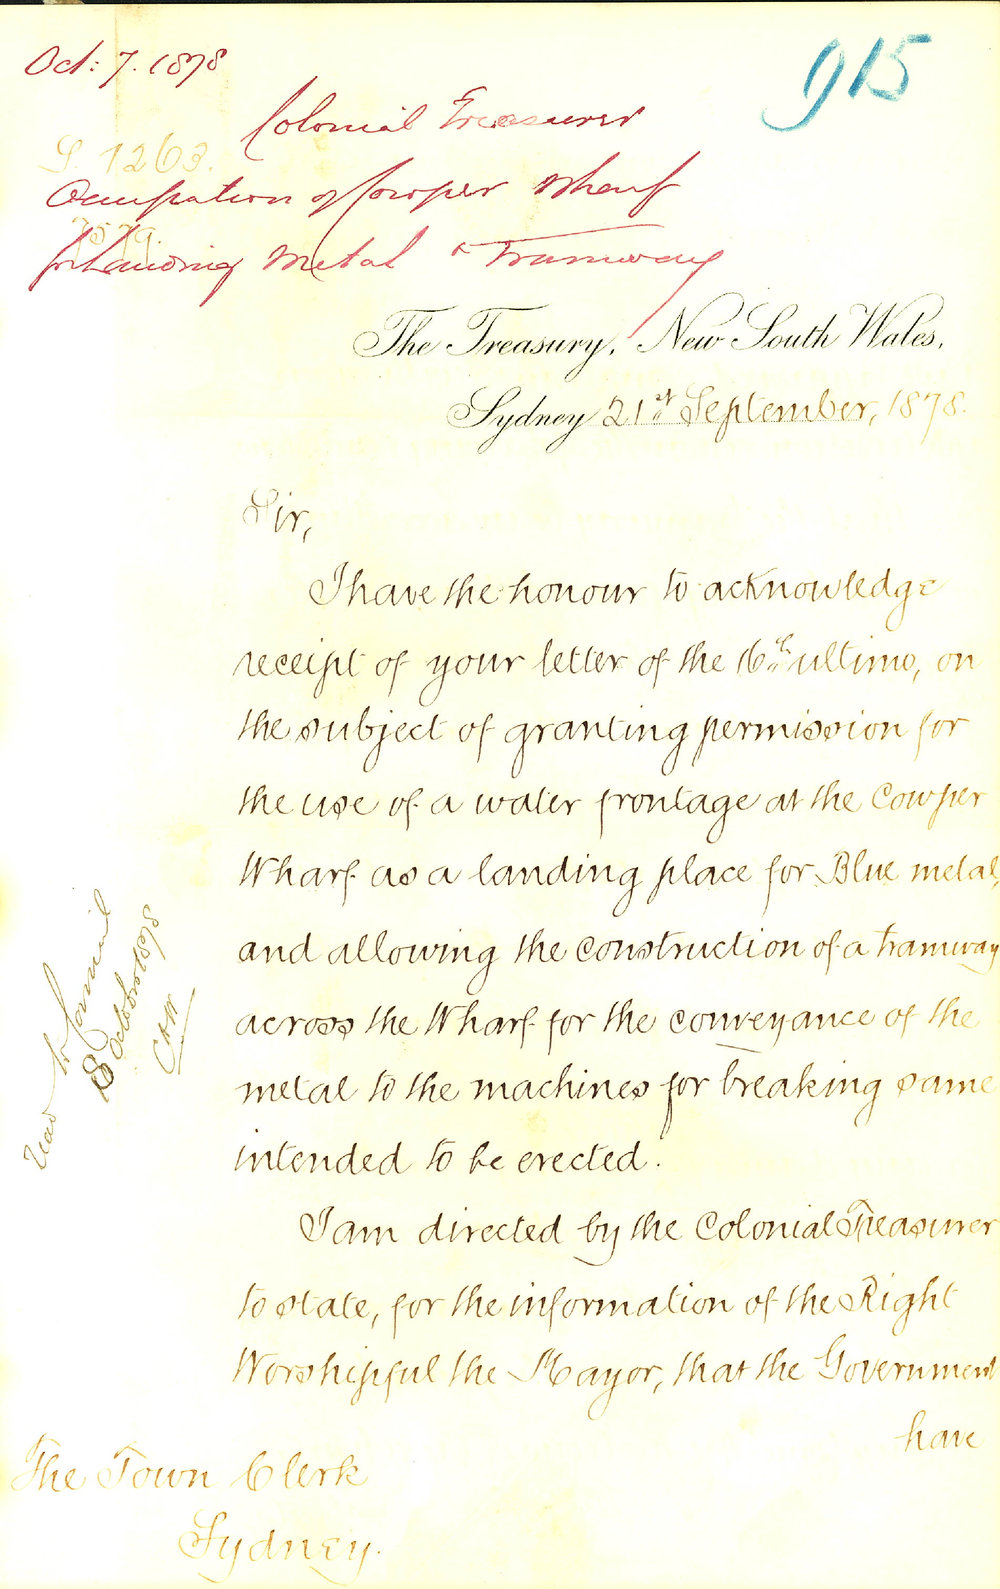 Oct: 7. 1878
915
Colonial Treasurer
S. 1263.
Occupation of Cowper Wharf
7579.
for Landing Metal & Tramway
The Treasury, New South Wales,
Sydney 21st September, 1878.
Sir,
I have the honour to acknowledge
receipt of your letter of the 16th ultimo, on
the subject of granting permission for
the use of a water frontage at the Cowper
Wharf as a landing place for Blue metal,
and allowing the construction of a tramway
across the Wharf for the conveyance of the
metal to the machines for breaking same
intended to be erected.
I am directed by the Colonial Treasurer
to state, for the information of the Right
Worshipful the Mayor, that the Government
have
The Town Clerk
Sydney.
Read to Council
8 October 1878
CHW